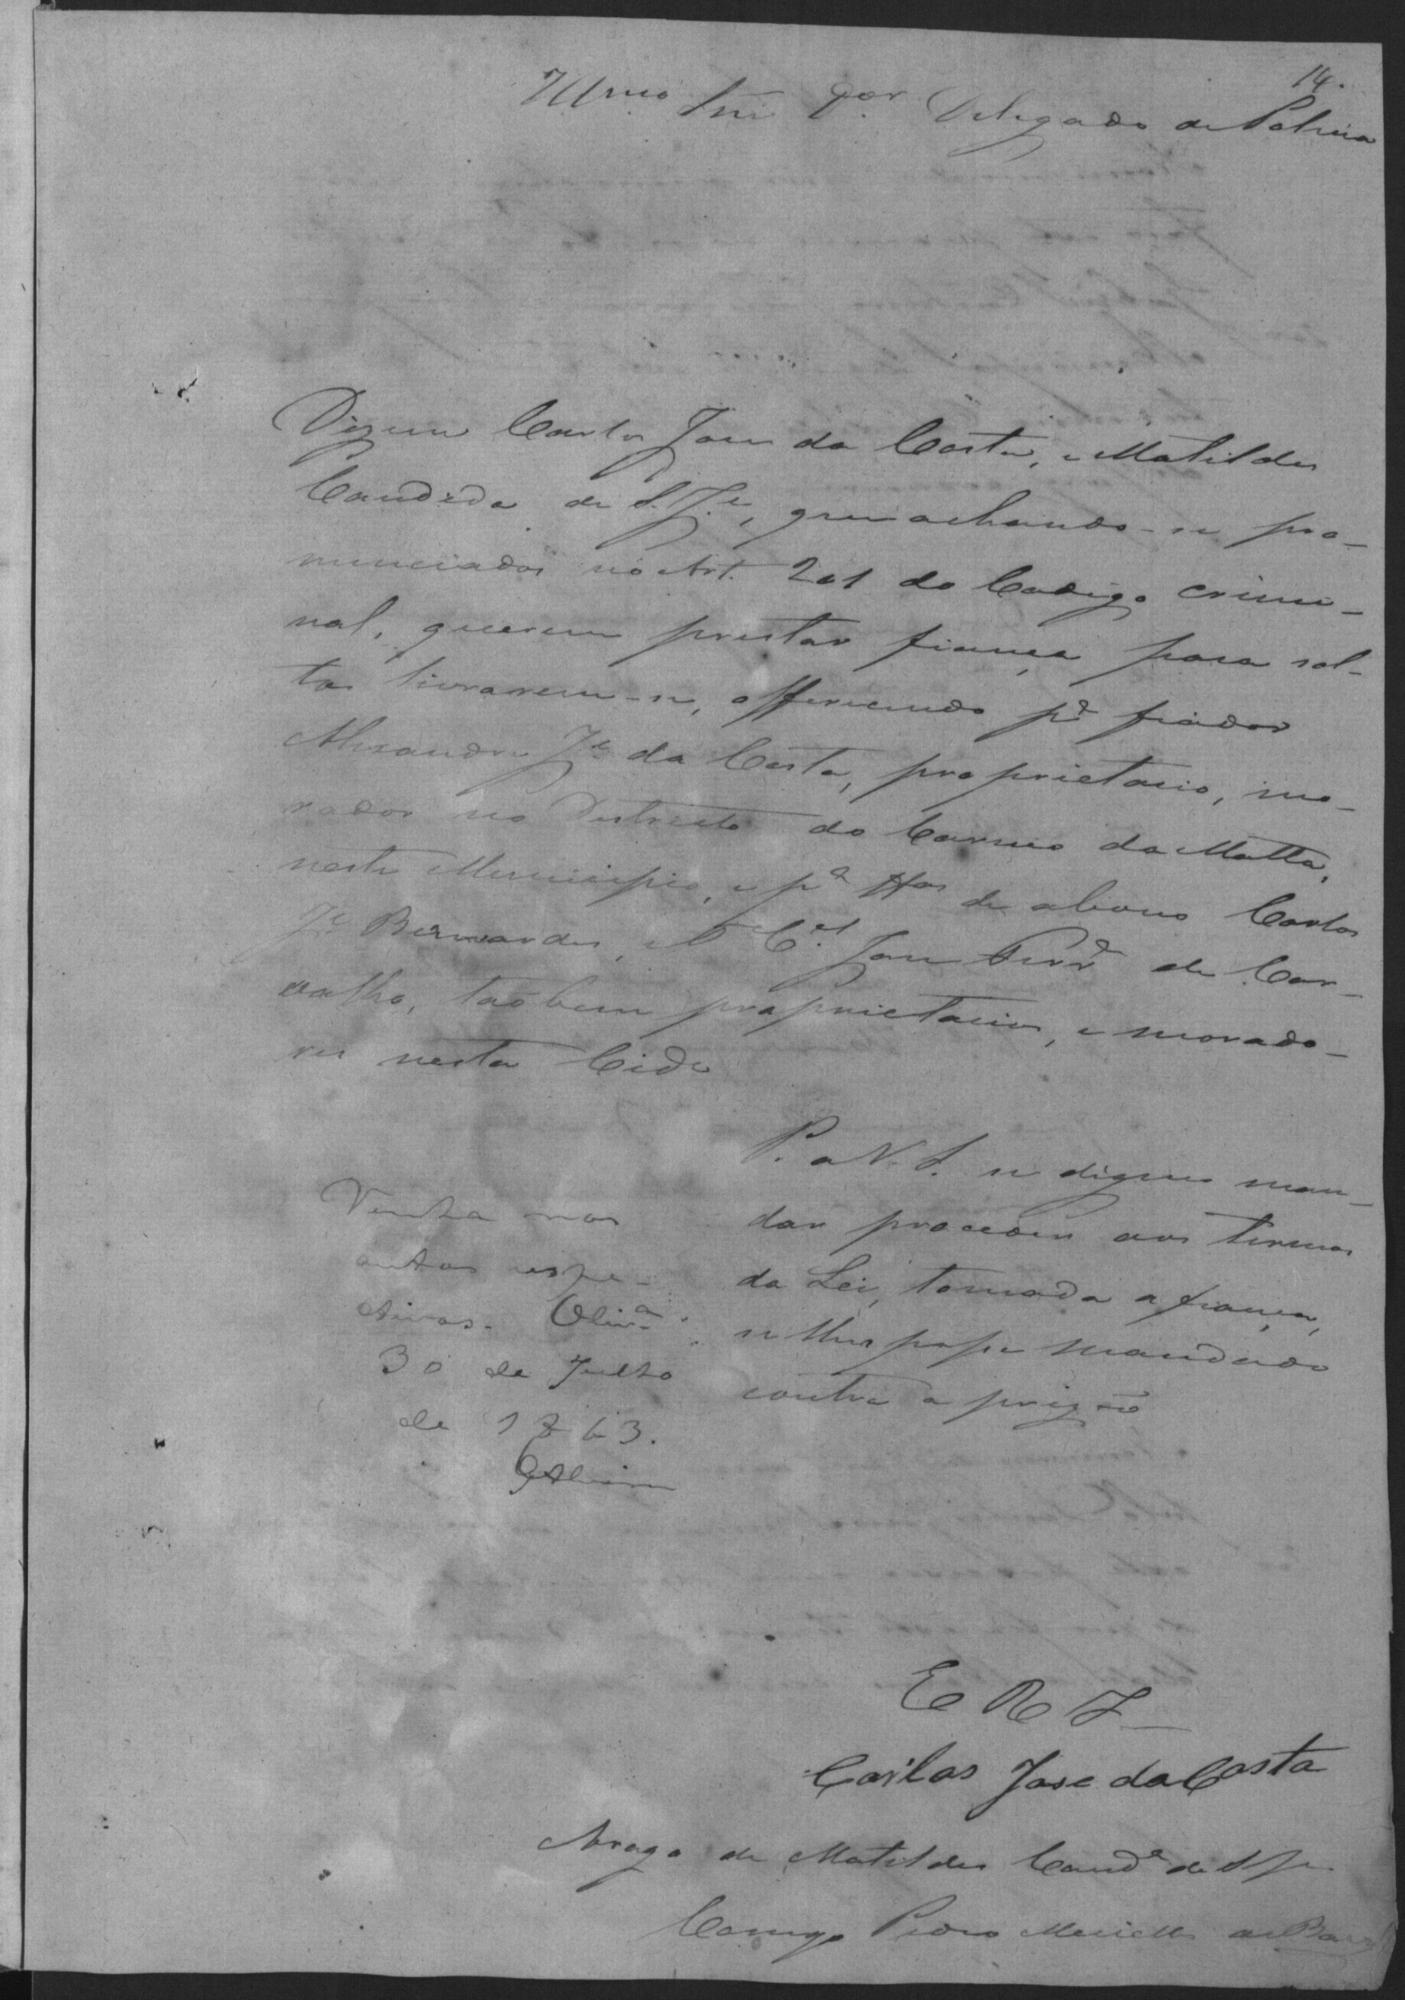 14.
Illmo Snr Dor Delegado de Policia
Dizem Carlos Jose da Costa, e Matildes
Candida de S. Je, que achando-se pro-
nunciados no Art. 201 do Codigo crimi-
nal, querem prestar fiança para sol-
tos livrarem-se, offerecendo pr fiador
Alexandre Je da Costa, proprietario, mo-
rador no Districto do Carmo da Matta,
neste Municipio, e pa tas de abono Carlos
Je Bernardes, e Cel Jose Ferra de Car-
valho, taobem proprietarios, e morado-
res nesta Cide
P. a V. S. se digne man-
dar proceder aos termos
da Lei, tomada a fiança,
se lhes passe mandado
contra a prizão
Venha nos
autos respe-
ctivos. Olivra
30 de Julho
de 1863.
E R J
Carlos Jose da Costa
Arogo de Matildes Canda de S Je
Conego Pedro